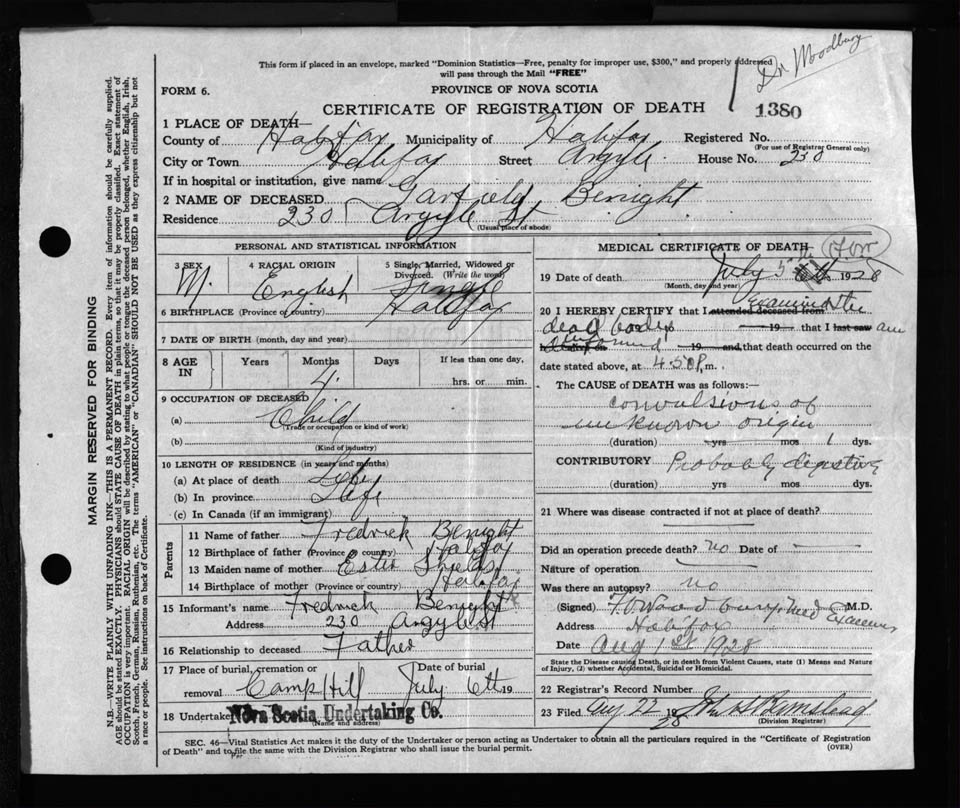 Dr Woodbury
This form if placed in an envelope, marked "Dominion Statistics—Free, penalty for improper use, $300," and properly addressed
will pass through the Mail "FREE"
FORM 6.
PROVINCE OF NOVA SCOTIA
CERTIFICATE OF REGISTRATION OF DEATH
1380
1 PLACE OF DEATH—
County of Halifax Municipality of Halifax Registered No.
(For use of Registrar General only)
City or Town Halifax Street Argyle House No. 230
If in hospital or institution, give name
2 NAME OF DECEASED Garfield Benight
Residence 230 Argyle St
(Usual place of abode)
PERSONAL AND STATISTICAL INFORMATION
3 SEX M. 4 RACIAL ORIGIN English 5 Single, Married, Widowed or Divorced. (Write the word) Single
6 BIRTHPLACE (Province or country) Halifax
7 DATE OF BIRTH (month, day and year)
8 AGE IN Years Months 4 Days If less than one day, hrs. or min.
9 OCCUPATION OF DECEASED
(a) Child
(Trade or occupation or kind of work)
(b)
(Kind of industry)
10 LENGTH OF RESIDENCE (in years and months)
(a) At place of death Life
(b) In province Life
(c) In Canada (if an immigrant)
Parents
11 Name of father Fredrick Benight
12 Birthplace of father (Province or country) Halifax
13 Maiden name of mother Ester Shields
14 Birthplace of mother (Province or country) Halifax
15 Informant's name Fredrick Benight
Address 230 Argyle St
16 Relationship to deceased Father
17 Place of burial, cremation or removal Camp Hill Date of burial July 6th 19
18 Undertaker Nova Scotia Undertaking Co.
(Name and address)
MEDICAL CERTIFICATE OF DEATH
19 Date of death July 5 1928
(Month, day and year)
20 I HEREBY CERTIFY that I attended deceased from examined the
dead body 19 that I last saw am
19 and that death occurred on the
date stated above, at 4.50 P. m.
The CAUSE of DEATH was as follows:—
Convulsions of
unknown origin
(duration) yrs mos 1 dys.
CONTRIBUTORY Probably digestive
(duration) yrs mos dys.
21 Where was disease contracted if not at place of death?
Did an operation precede death? no Date of
Nature of operation
Was there an autopsy? no
(Signed) M.D. Med Examiner
Address Halifax
Date Aug 1st 1928
State the Disease causing Death, or in death from Violent Causes, state (1) Means and Nature
of Injury, (2) whether Accidental, Suicidal or Homicidal.
22 Registrar's Record Number
23 Filed Aug 22 1928
(Division Registrar)
SEC. 46—Vital Statistics Act makes it the duty of the Undertaker or person acting as Undertaker to obtain all the particulars required in the "Certificate of Registration
of Death" and to file the same with the Division Registrar who shall issue the burial permit.
(OVER)
MARGIN RESERVED FOR BINDING
N.B.—WRITE PLAINLY WITH UNFADING INK—THIS IS A PERMANENT RECORD. Every item of information should be carefully supplied.
AGE should be stated EXACTLY. PHYSICIANS should STATE CAUSE OF DEATH in plain terms, so that it may be properly classified. Exact statement of
OCCUPATION is very important. RACIAL ORIGIN will be described by stating to what people or tongue the deceased person belonged, whether English, Irish,
Scotch, French, German, Russian, Ruthenian, etc. The terms "AMERICAN" or "CANADIAN" SHOULD NOT BE USED as they express citizenship but not
a race or people. See instructions on back of Certificate.